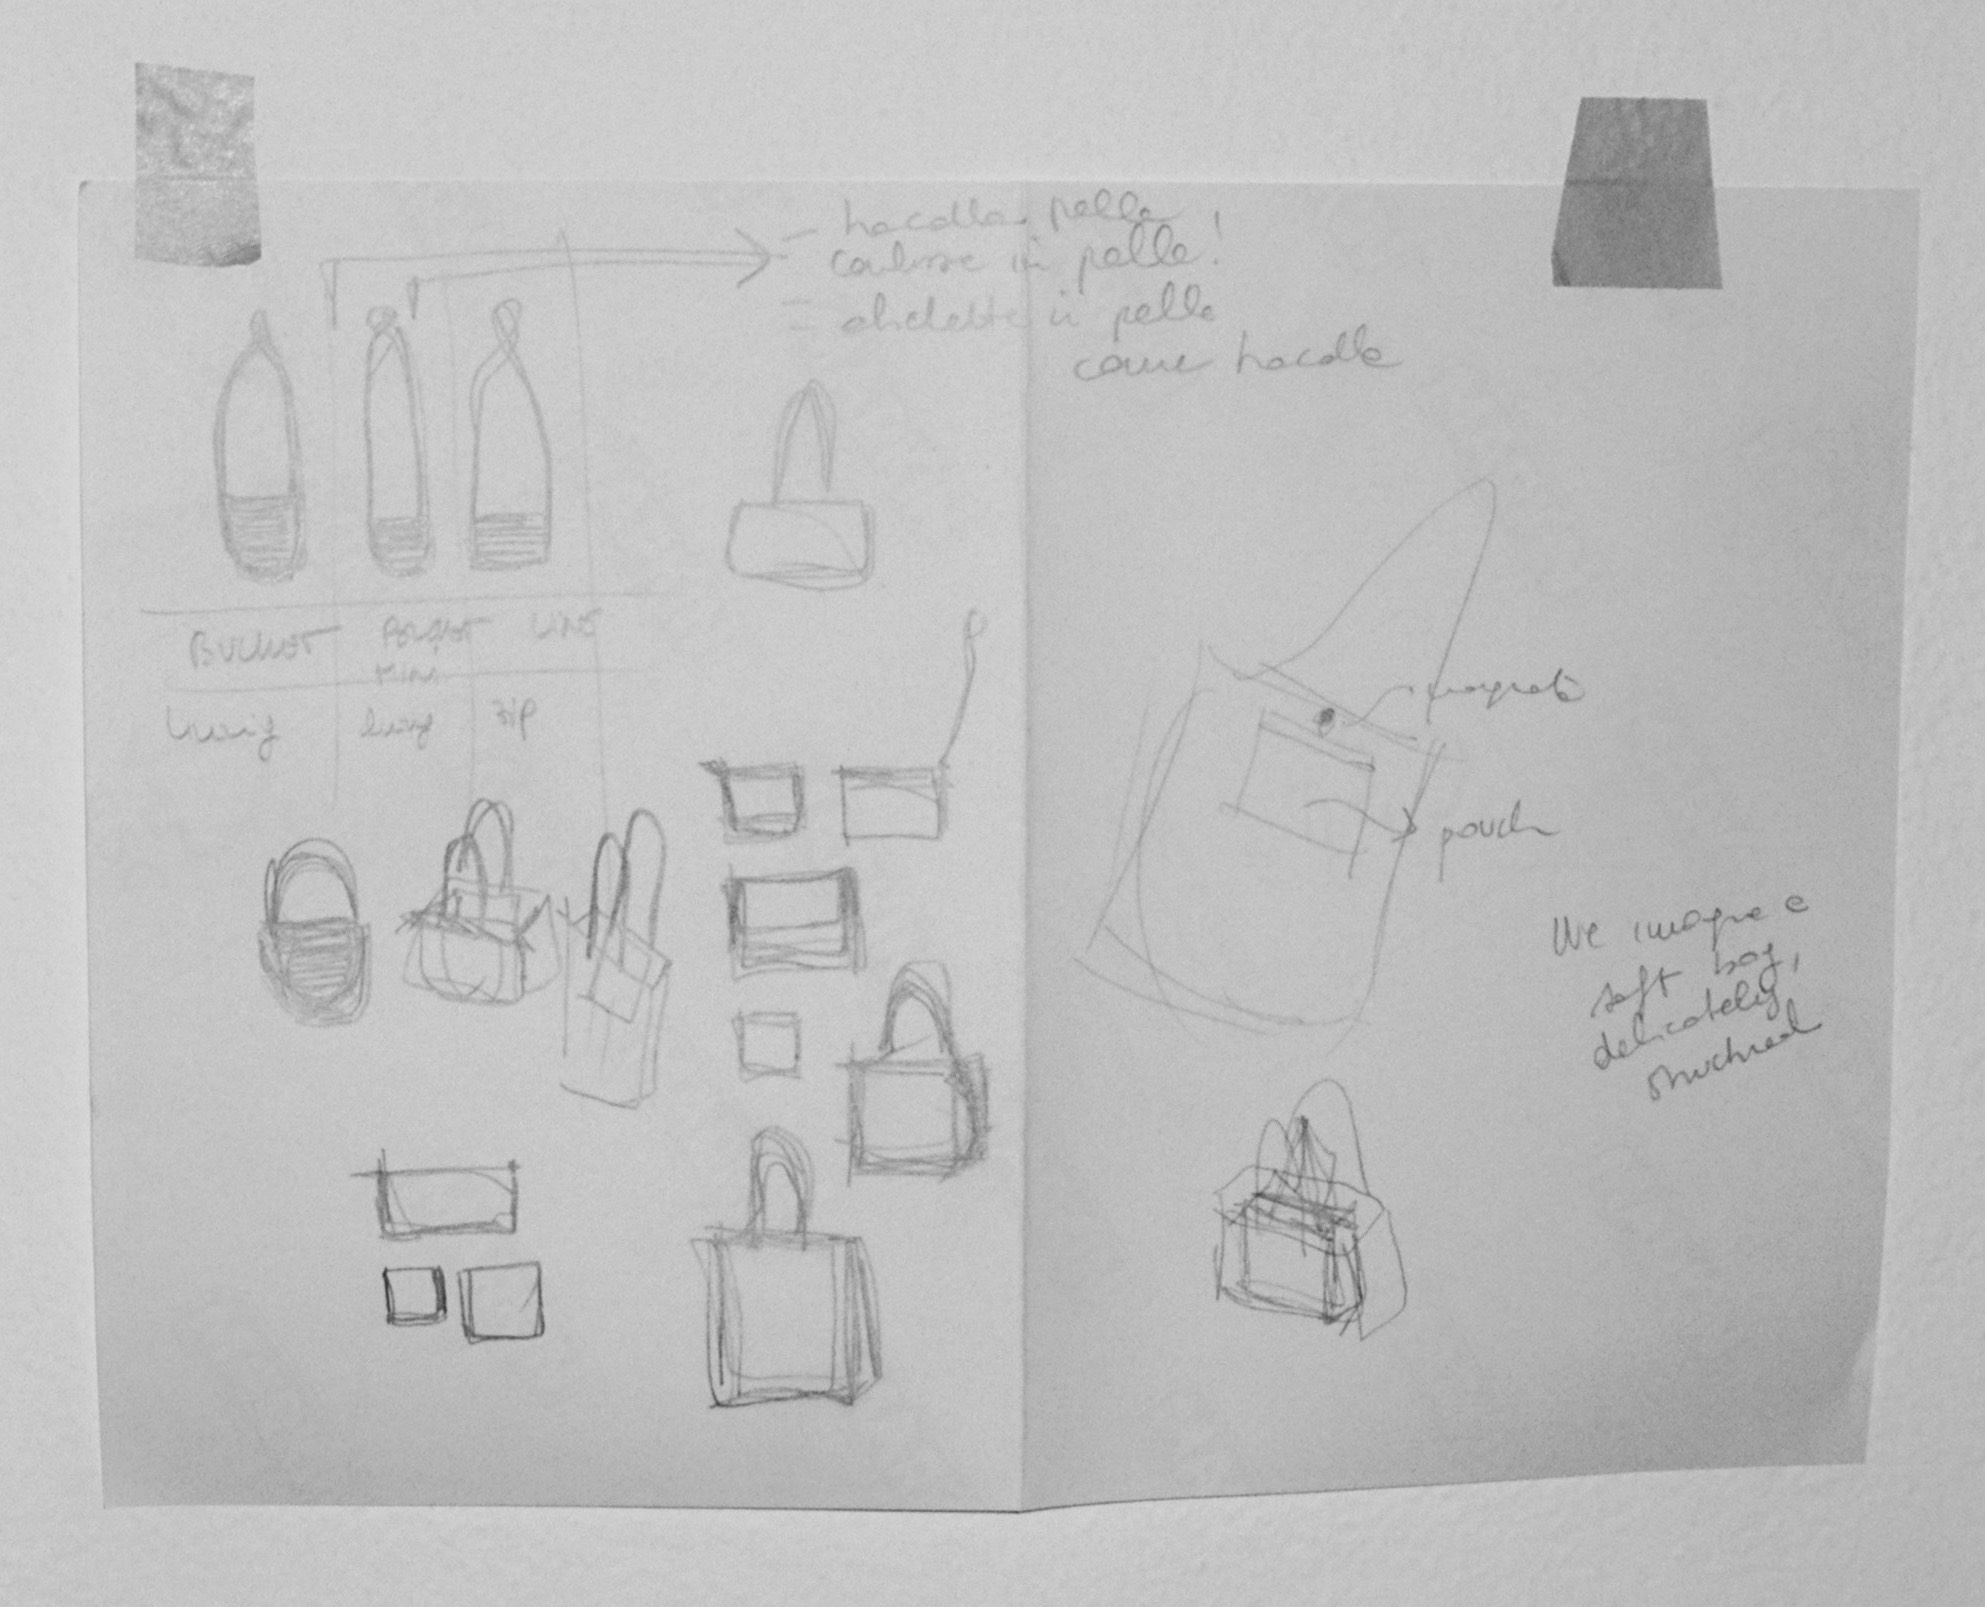 - tracolla pella
coulisse in pelle!
- etichette in pelle
come tracolla
BUCKET
MINI
LINE
lining
lining
zip
magnete
pouch
We imagine a
soft bag,
delicately
structured